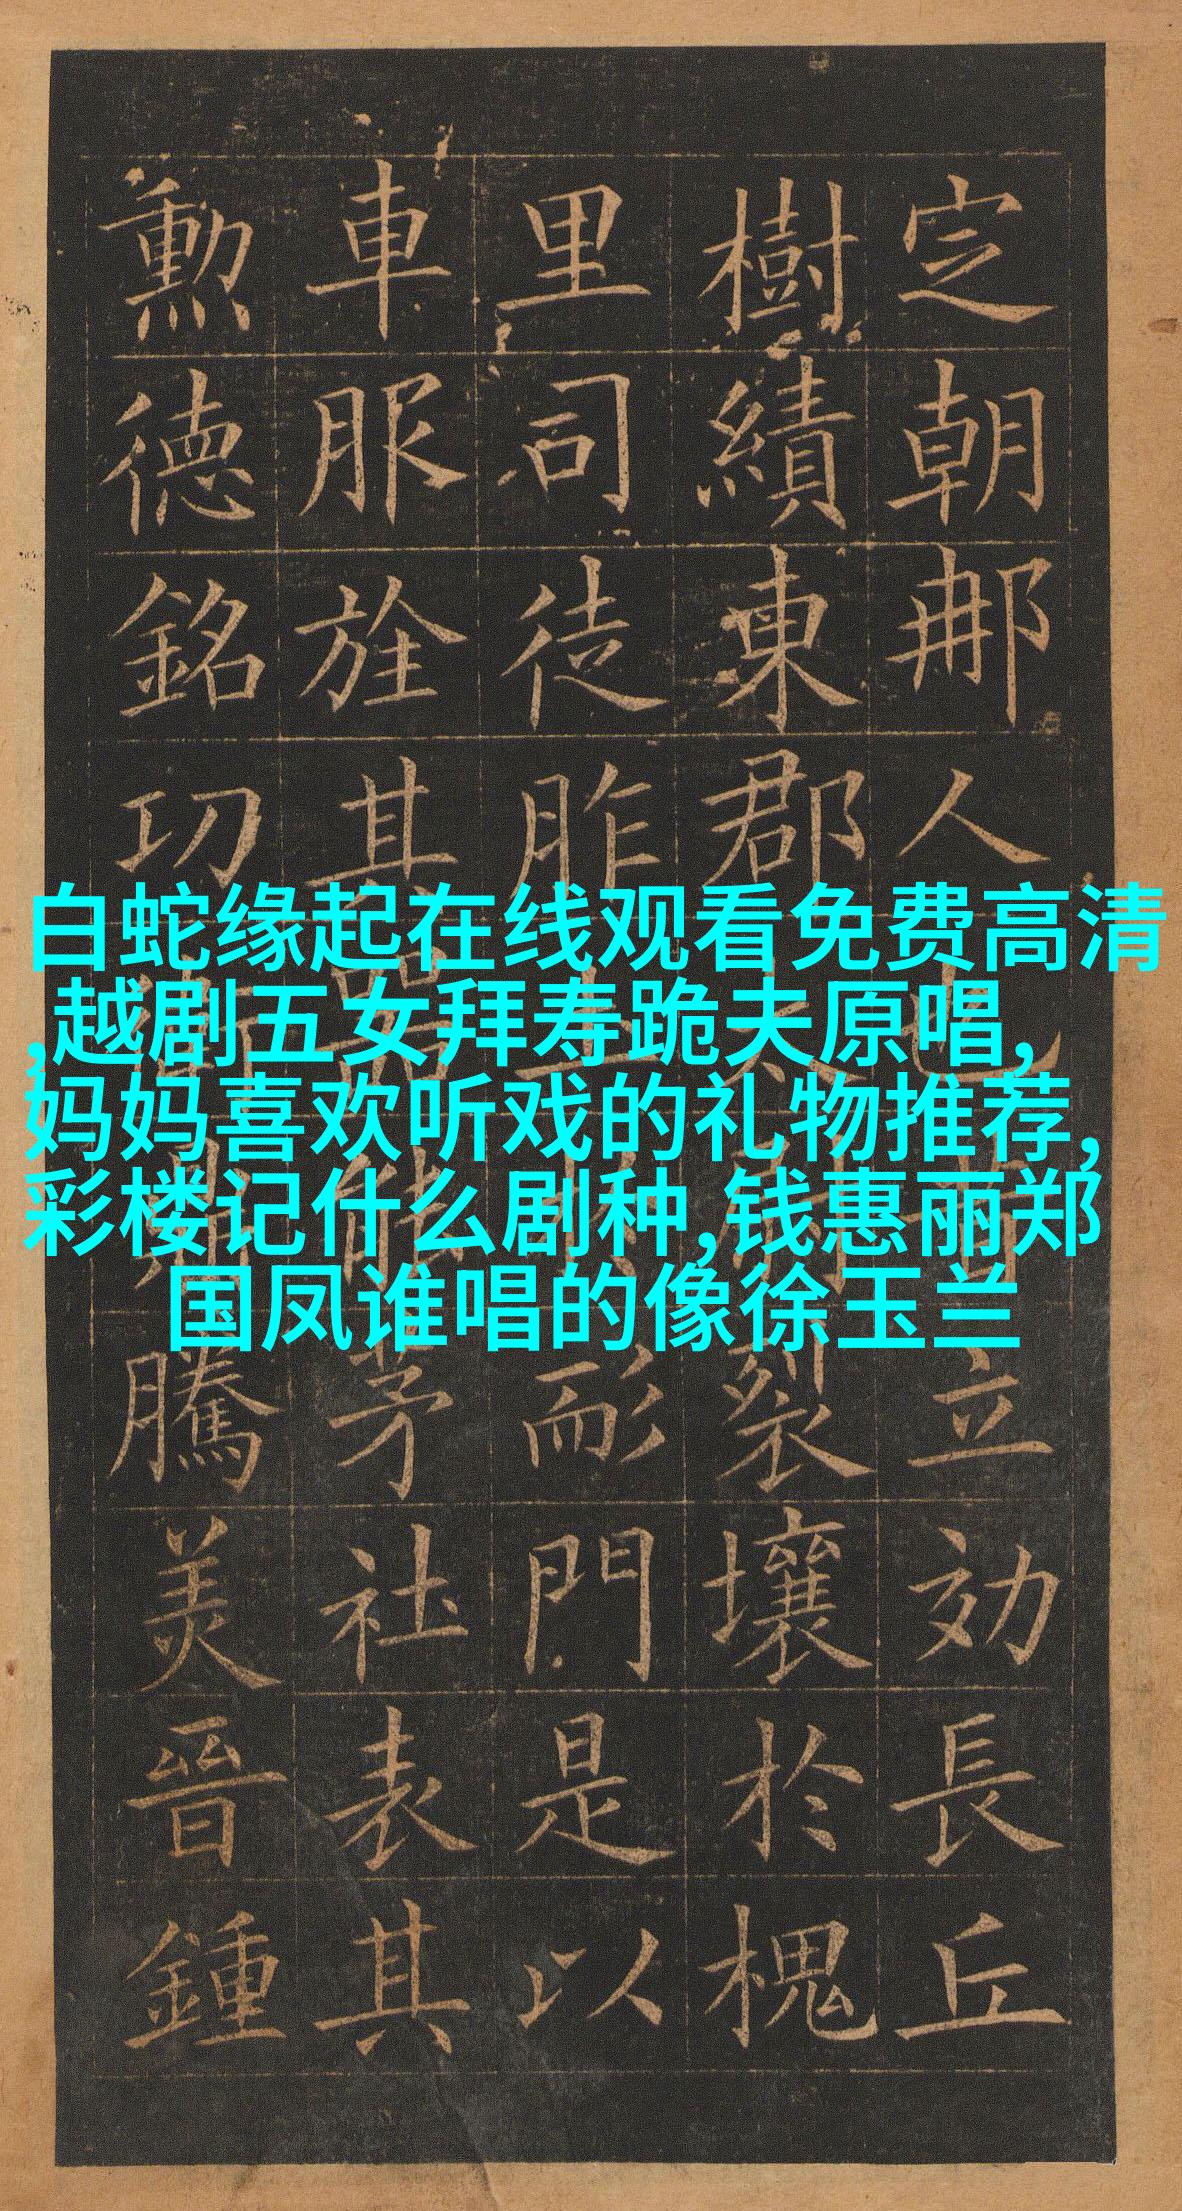 定朝那人也昔立効長丘
樹績東郡太尉裂壤於槐
里司徒胙土於耏門是以
車服旌其器能茅社表其
勳德銘功衛鼎騰美晉鍾
白蛇缘起在线观看免费高清
,越剧五女拜寿跪夫原唱,
妈妈喜欢听戏的礼物推荐,
彩楼记什么剧种,钱惠丽郑
国凤谁唱的像徐玉兰